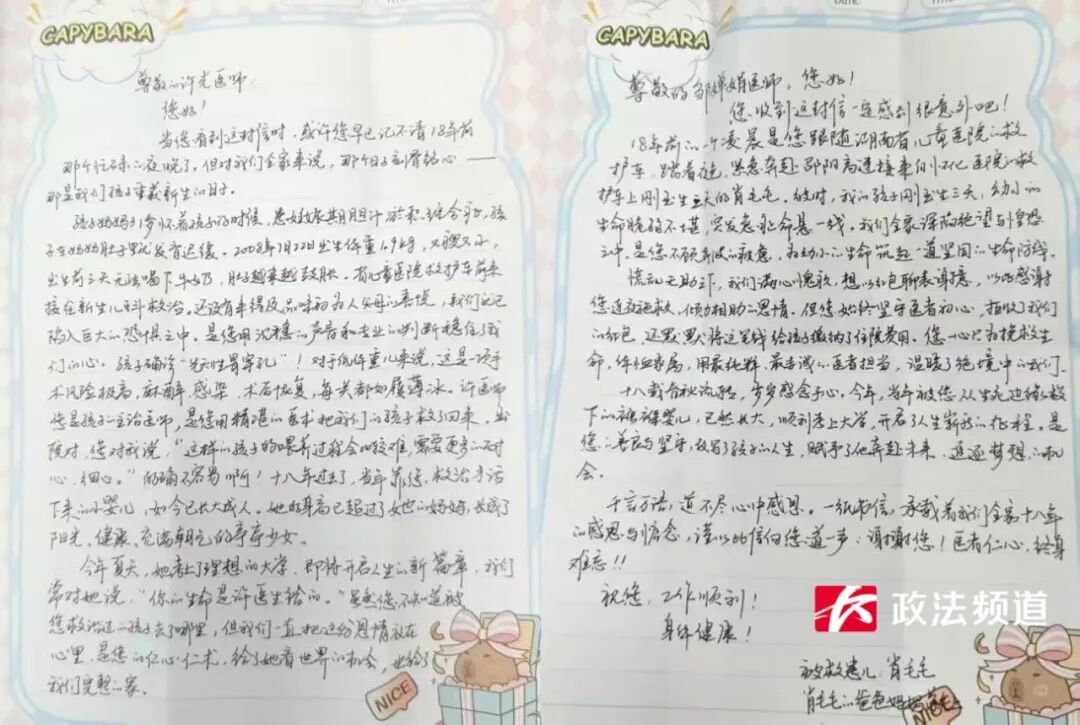 CAPYBARA
尊敬的许光医师：
您好！
当您看到这封信时，或许您早已记不清18年前
那个忙碌的夜晚了。但对我们全家来说，那个日子刻骨铭心——
那是我们孩子重获新生的日子。
孩子妈妈31岁怀着孩子的时候，患妊娠期胆汁淤积综合征，孩
子在妈妈肚子里就发育迟缓。2008年7月22日出生体重1.9kg，又瘦又小，
出生前三天无法喝下牛奶，肚子越来越鼓胀。省儿童医院救护车前来
接在新生儿科救治。还没有来得及品味初为人父母的喜悦，我们就已
陷入巨大的恐惧之中。是您用沉稳的声音和专业的判断稳住了我
们的心。孩子确诊"先天性胃穿孔"！对于低体重儿来说，这是一项手
术风险极高，麻醉、感染、术后恢复，每关都如履薄冰。许医师
您是孩子的主治医师，是您用精湛的医术把我们的孩子救了回来。出
院时，您对我说，"这样的孩子的喂养过程会比较难，需要更多的耐
心、细心。"的确不容易啊！十八年过去了，当年靠您救治才活
下来的小婴儿，如今已长大成人。她的身高已超过了她的妈妈，长成了
阳光、健康、充满朝气的亭亭少女。
今年夏天，她考上了理想的大学，即将开启人生的新篇章。我们
常对她说，"你的生命是许医生给的。"虽然您不知道被
您救治过的孩子去了哪里，但我们一直把这份恩情放在
心里。是您的仁心仁术，给了她看世界的机会，也给了
我们完整的家。
NICE
CAPYBARA
Date
Title
尊敬的邹婵娟医师，您好！
您收到这封信一定感到很意外吧！
18年前的一个凌晨是您跟随湖南省儿童医院的救
护车，踏着夜色，紧急奔赴邵阳高速接来自怀化医院的救
护车上刚出生三天的肖毛毛。彼时，我的孩子刚出生三天，幼小的
生命脆弱不堪，突发急症命悬一线。我们全家深陷绝望与惶恐
之中。是您不顾长夜的疲惫，为幼小的生命筑起一道坚固的生命防线。
慌乱无助下，我们满心愧歉，想以红包聊表谢意，以此感谢
您连夜施救、倾力相助的恩情。但您始终坚守医者初心，拒收我们
的红包，还默默将这笔钱给孩子缴纳了住院费用。您一心只为挽救生
命，体恤家属，用最纯粹、最赤诚的医者担当，温暖了绝境中的我们。
十八载春秋流转，岁岁感念于心。今年，当年被您从生死边缘救
下的襁褓婴儿，已然长大，顺利考上大学，开启了人生崭新的征程。是
您的善良与坚守，改写了孩子的人生，赋予了他奔赴未来、追逐梦想的机
会。
千言万语，道不尽心中感恩。一纸书信，承载着我们全家十八年
的感恩与惦念，谨以此信向您道一声：谢谢您！医者仁心，终身
难忘！！
祝您，工作顺利！
身体健康！
被救患儿：肖毛毛
肖毛毛的爸爸妈妈
NICE
政法频道